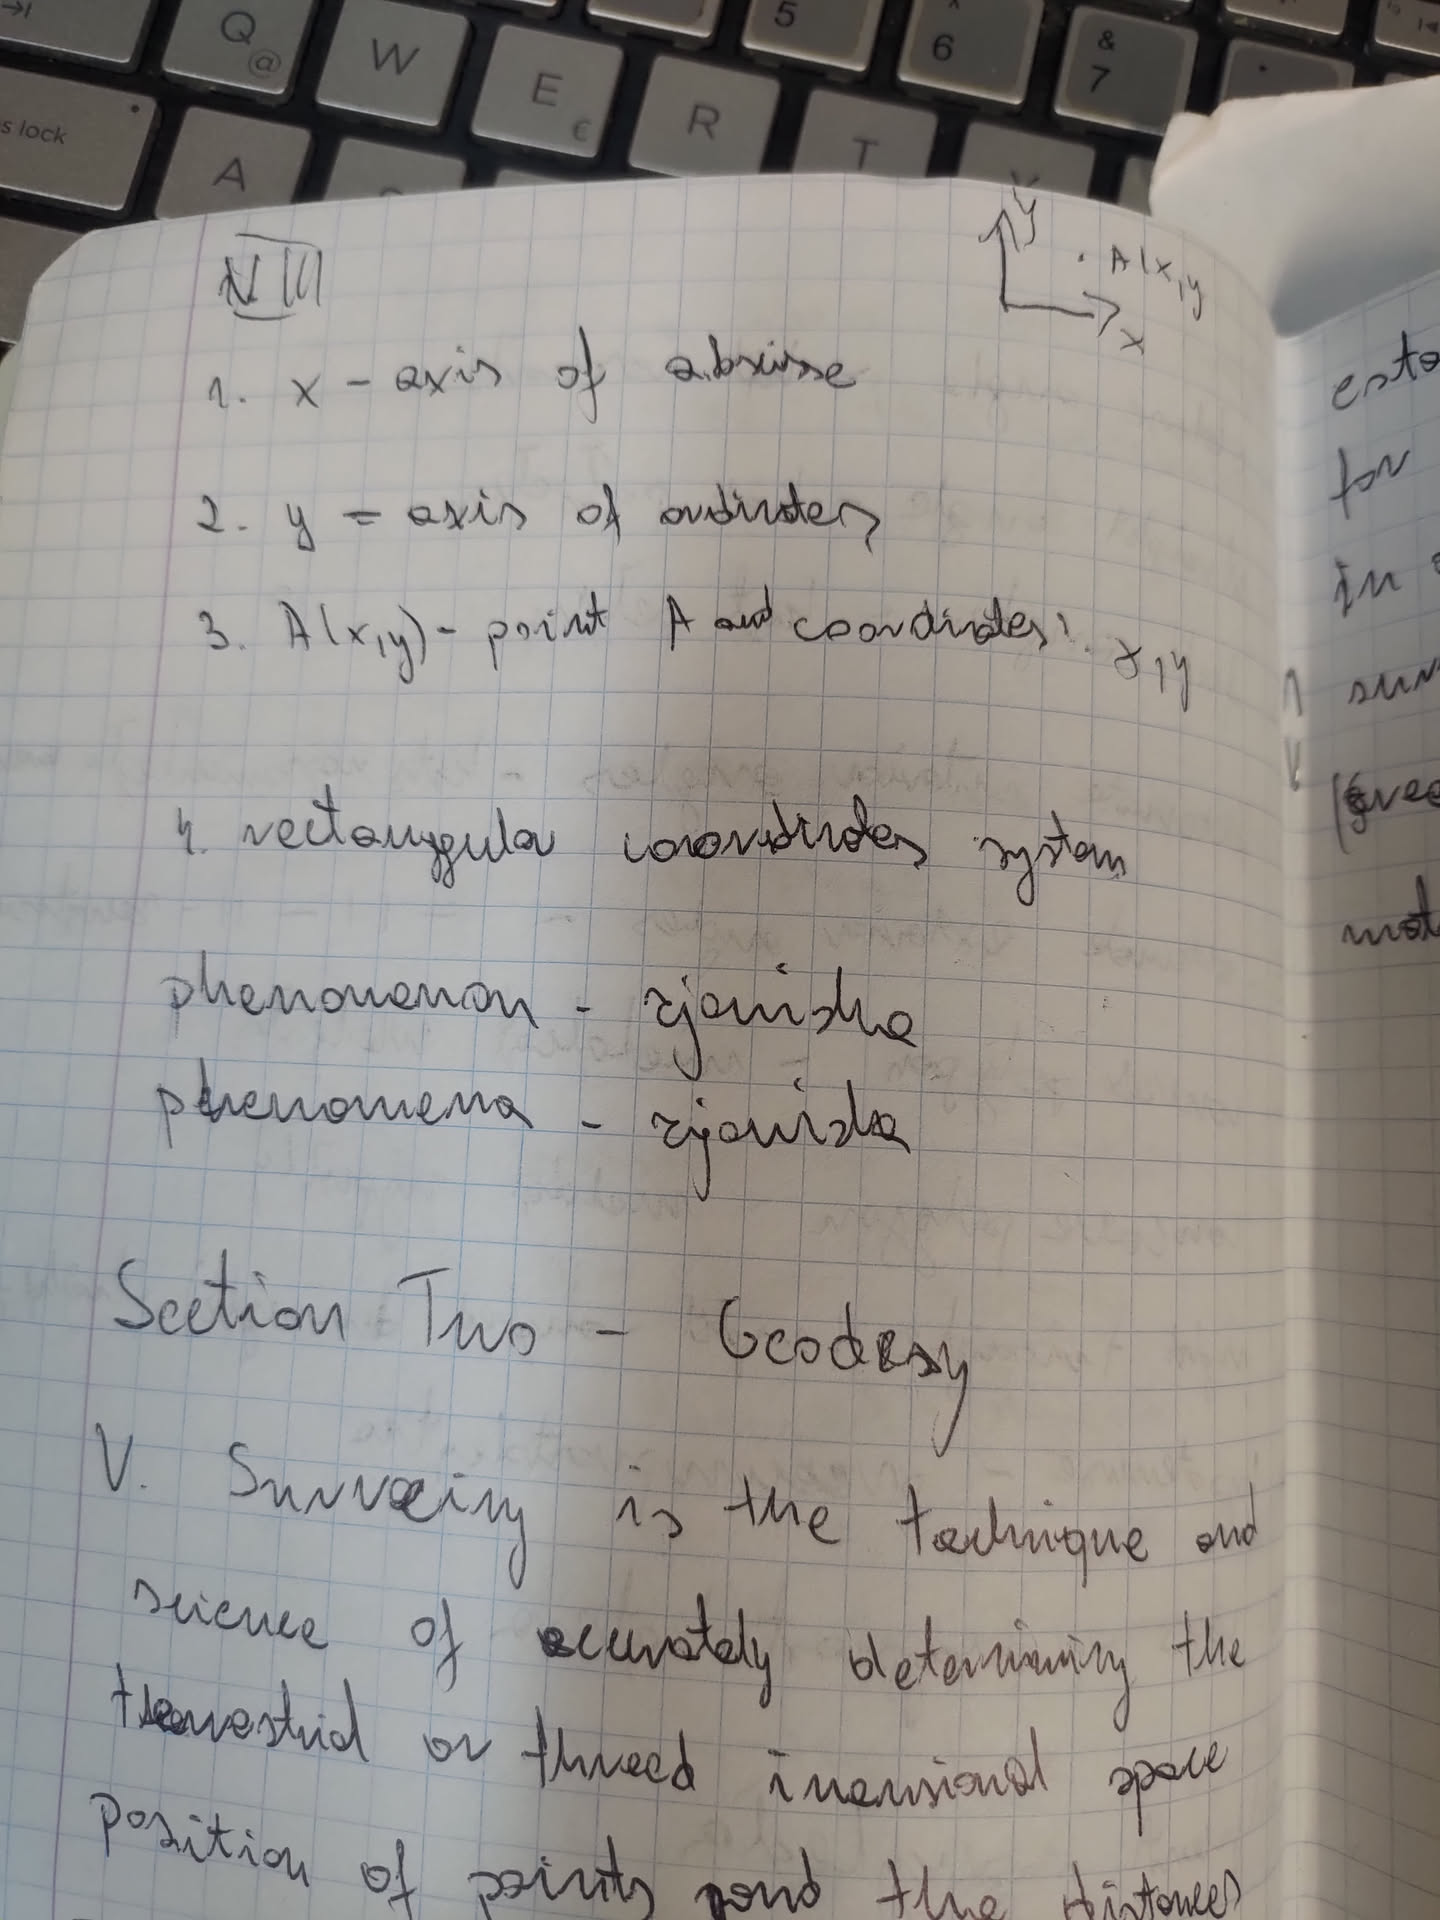 5
^
6
&
7
Q
@
W
E
€
R
T
Y
s lock
A
N III
Y
A(x,y
x
1. x - axis of absisse
2. y = axis of ordinates
3. A(x,y) - point A and coordinates: x,y
4. rectangular coordinates system
phenomenon - zjawisko
phenomena - zjawiska
Section Two - Geodesy
V. Surveing is the technique and
science of accurately determining the
terrestrial or threed imensional space
position of points and the distances
esta
for
in
sur
mat